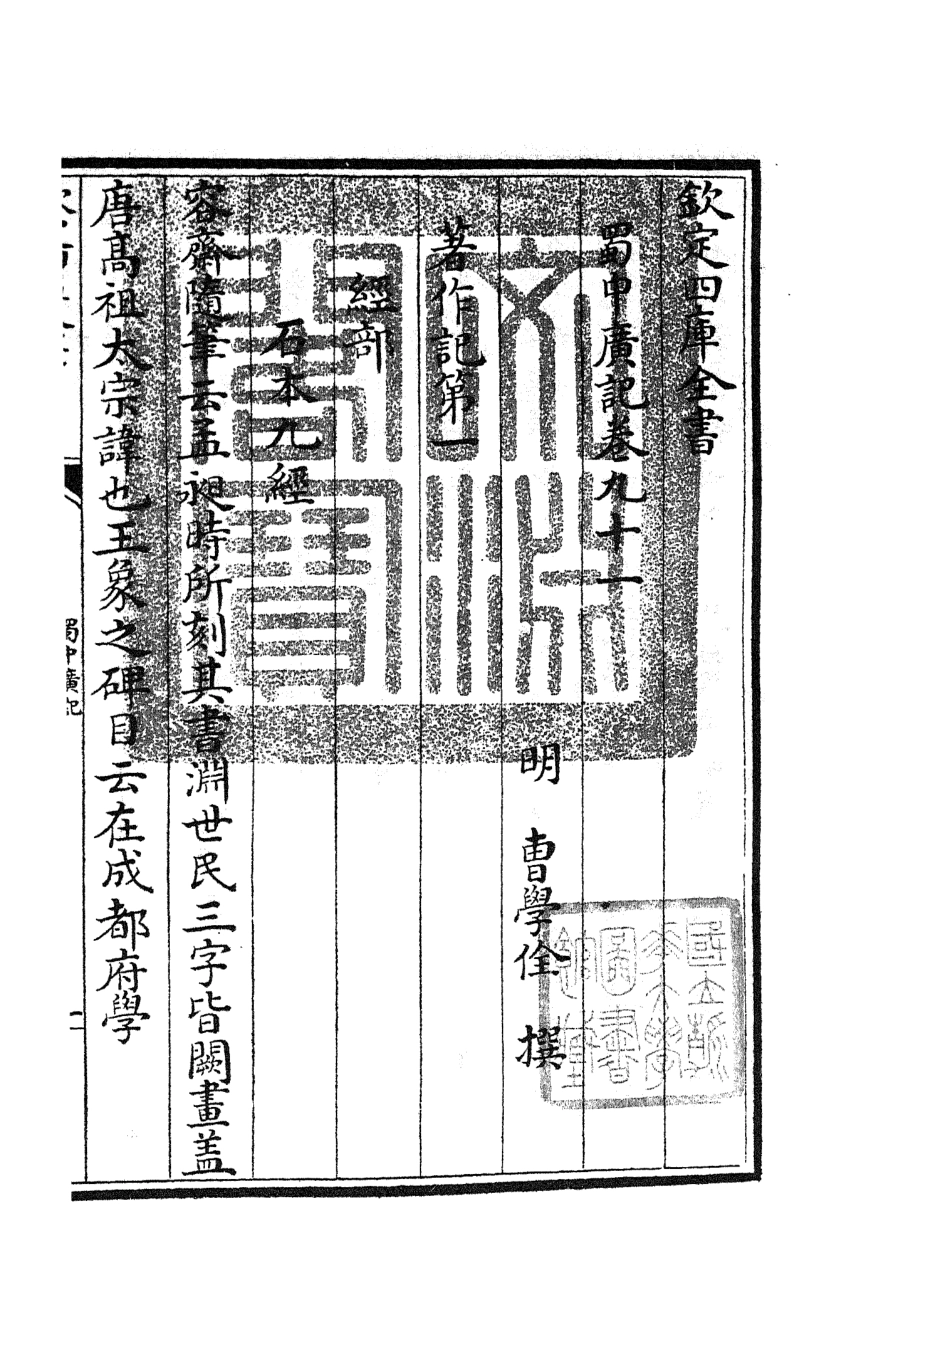 欽定四庫全書
蜀中廣記卷九十一
明 曹學佺 撰
著作記第一
經部
石本九經
容齋隨筆云孟昶時所刻其書淵世民三字皆闕畫盖
唐高祖太宗諱也王象之碑目云在成都府學
蜀中廣記
文淵閣寶